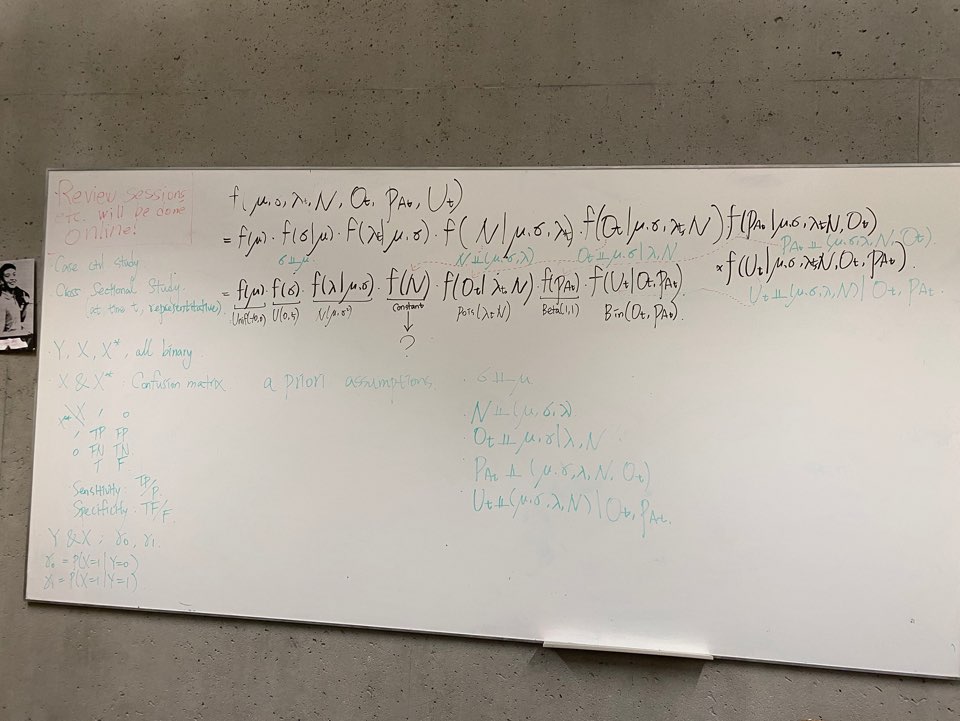 Review sessions
etc. will be done
online!
Case ctrl study
Cross Sectional Study.
(at time t, representative)
Y, X, X*, all binary.
X & X* : Confusion matrix
X* X 1 0
1 TP FP
0 FN TN
T F
Sensitivity: TP/P.
Specificity. TF/F
Y & X ; γ₀, γ₁.
γ₀ = P(X=1|Y=0)
γ₁ = P(X=1|Y=1)
f(μ, σ, λt, N, Ot, PAt, Ut)
= f(μ) · f(σ|μ) · f(λt|μ, σ) · f(N|μ, σ, λt) · f(Ot|μ, σ, λt, N) f(PAt|μ, σ, λt, N, Ot)
σ ⫫ μ N ⫫ (μ, σ, λ) Ot ⫫ μ, σ|λ, N PAt ⫫ (μ, σ, λ, N, Ot).
× f(Ut|μ, σ, λt, N, Ot, PAt).
Ut ⫫ (μ, σ, λ, N)|Ot, PAt.
= f(μ) · f(σ) · f(λ|μ, σ) · f(N) · f(Ot|λt, N) · f(PAt) · f(Ut|Ot, PAt)
N(μ, σ²) Constant Pois(λtN) Beta(1,1) Bin(Ot, PAt).
?
a priori assumptions.
· σ ⫫ μ
· N ⫫ (μ, σ, λ)
· Ot ⫫ μ, σ|λ, N
· PAt ⫫ (μ, σ, λ, N, Ot)
· Ut ⫫ (μ, σ, λ, N)|Ot, PAt.